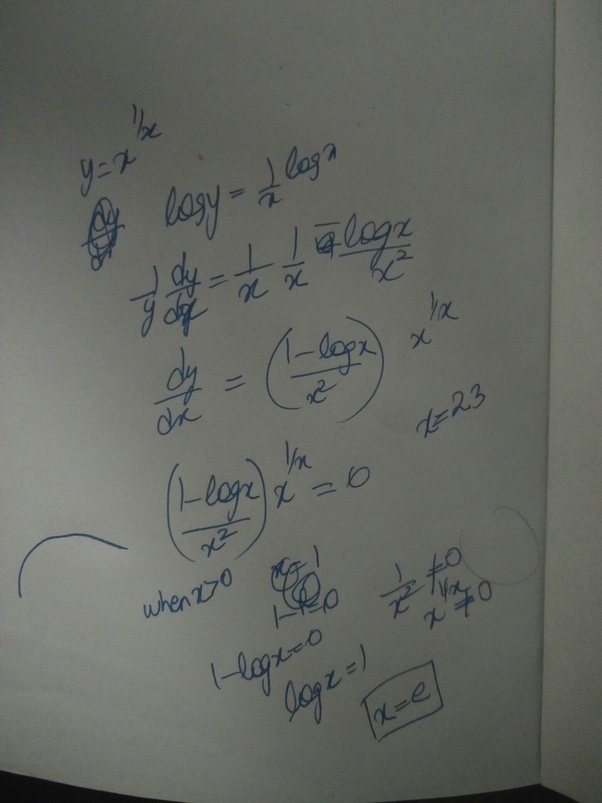 y = x^{1/x}
log y = 1/x log x
1/y dy/dx = 1/x 1/x - log x / x²
dy/dx = ((1 - log x) / x²) x^{1/x}
x = 2.3
((1 - log x) / x²) x^{1/x} = 0
when x > 0
x = 1
1/x² ≠ 0
1 - 1 = 0
x^{1/x} ≠ 0
1 - log x = 0
log x = 1
x = e